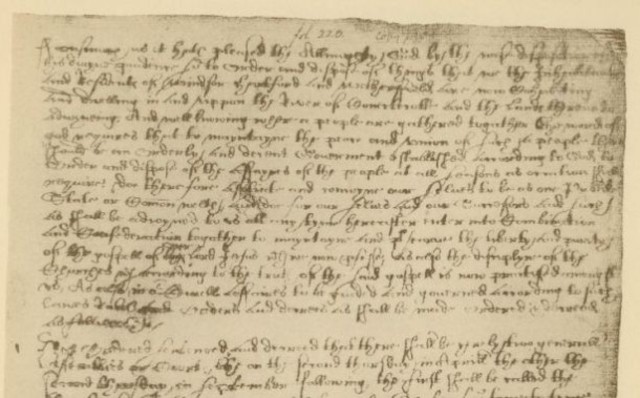 fol. 220
Forasmuch as it hath pleased the Allmighty God by the wise
his diuyne pruidence so to Order and dispose of things that we the Inhabitants
and Residents of Windsor Harteford and Wethersfield are now cohabiting
and dwelling in and vppon the River of Conectecotte and the Lands thereunto
adioyneing And well knowing where a people are gathered togather the word of
God requires that to mayntayne the peace and vnion of such a people there
should be an orderly and decent Gouerment established according to God to
order and dispose of the affayres of the people at all seasons as occation shall
require doe therefore assotiate and conioyne our selues to be as one Publike
State or Comonwelth and doe for our selues and our Successors and such
as shall be adioyned to vs att any tyme hereafter enter into Combination
and Confederation togather to mayntayne and prsearue the liberty and purity
of the gospell of our Lord Jesus wch we now prfesse as also the disciplyne of the
Churches wch according to the truth of the said gospell is now practised amongst
vs As also in or Ciuell Affaires to be guided and gouerned according to such
Lawes Rules Orders and decrees as shall be made ordered & decreed
as followeth
It is Ordered sentenced and decreed that there shall be yerely two generall
Assemblies or Courts the on the second thursday in Aprill the other the
second thursday in September following the first shall be called the